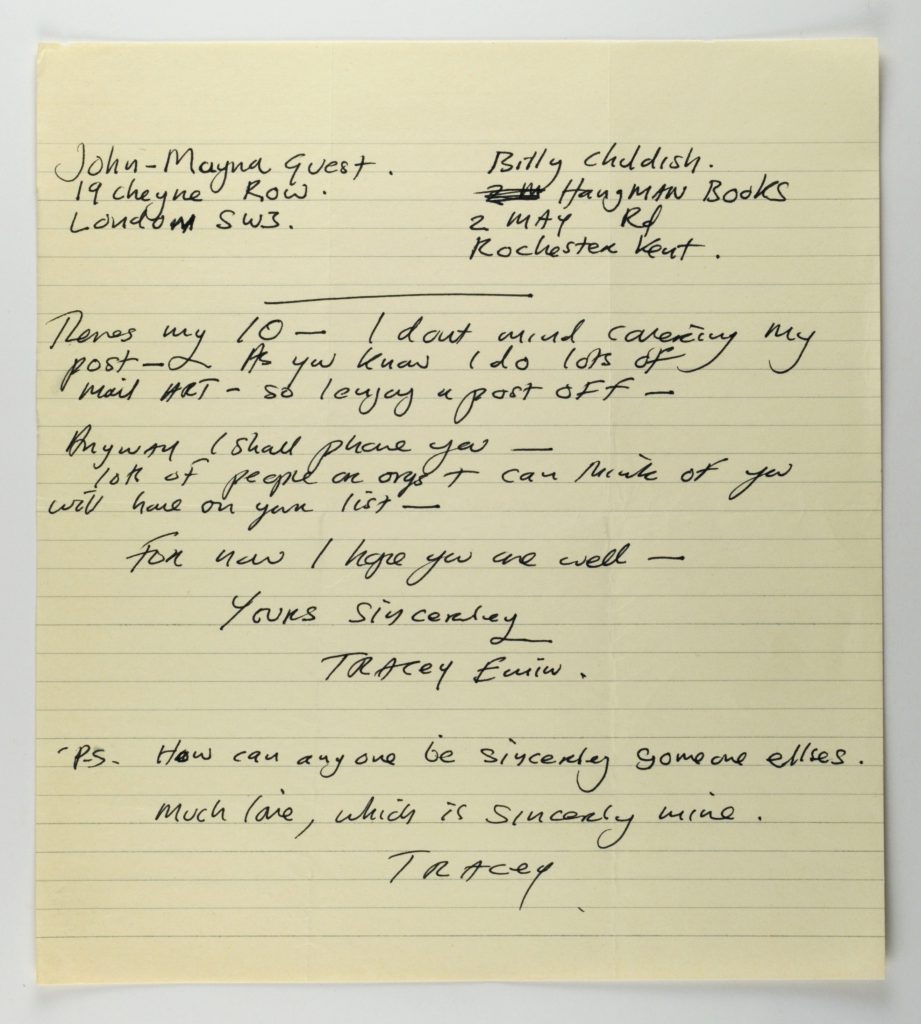 John-Mayna Guest.
19 Cheyne Row.
London SW3.
Billy Childish.
HangMAN Books
2 MAY Rd
Rochester Kent.
Heres my 10 — I dont mind my
post — As you know I do lots of
mail ART - so I enjoy a post off —
Anyway I shall phone you —
lots of people or orgs I can think of you
will have on your list —
For now I hope you are well —
Yours Sincerley
TRACey Emin.
P.S. How can anyone be sincerley someone ellses.
Much love, which is sincerly mine.
TRACey